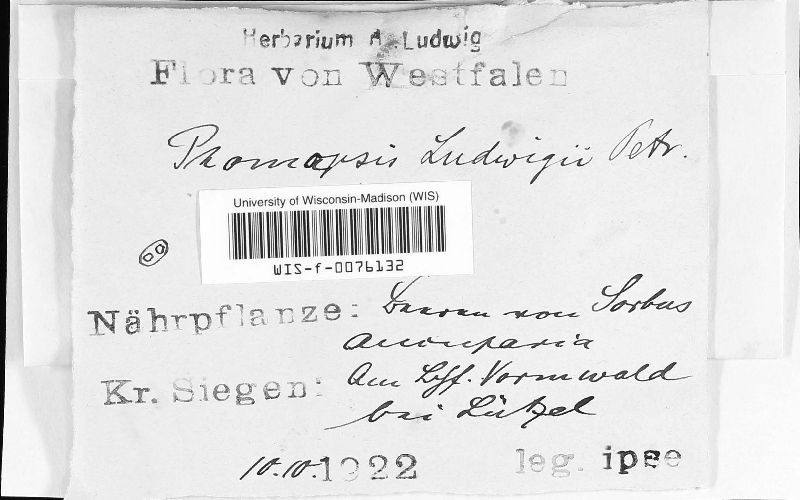 Herbarium A. Ludwig
Flora von Westfalen
Phomopsis Ludwigii Petr.
University of Wisconsin-Madison (WIS)
WIS-f-0076132
Nährpflanze: Beeren von Sorbus
aucuparia
Kr. Siegen: Am Bhf. Vormwald
bei Lützel
10.10.1922 leg. ipse